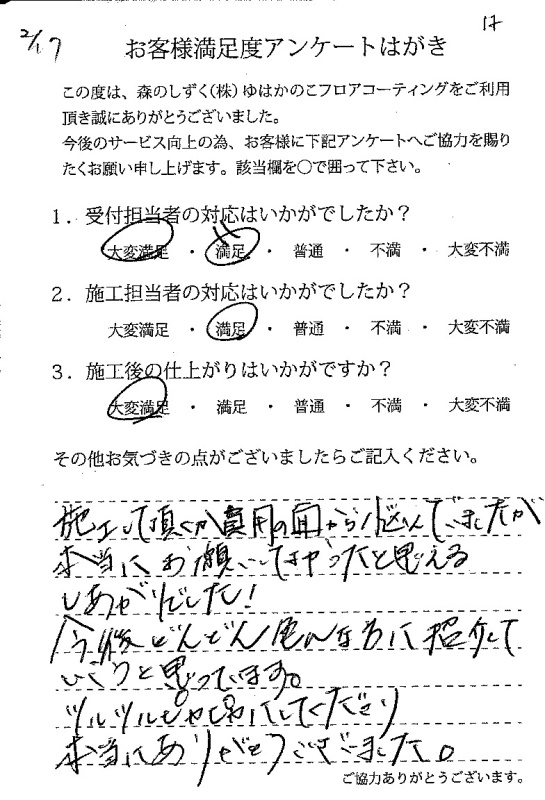 2/17
17
お客様満足度アンケートはがき
この度は、森のしずく(株)ゆはかのこフロアコーティングをご利用
頂き誠にありがとうございました。
今後のサービス向上の為、お客様に下記アンケートへご協力を賜り
たくお願い申し上げます。該当欄を〇で囲って下さい。
1．受付担当者の対応はいかがでしたか？
大変満足 ・ 満足 ・ 普通 ・ 不満 ・ 大変不満
2．施工担当者の対応はいかがでしたか？
大変満足 ・ 満足 ・ 普通 ・ 不満 ・ 大変不満
3．施工後の仕上がりはいかがですか？
大変満足 ・ 満足 ・ 普通 ・ 不満 ・ 大変不満
その他お気づきの点がございましたらご記入ください。
施工して頂くか費用の面から悩んでいましたが
本当にお願いしてよかったと思える
しあがりでした!
今後どんどん色んな方に紹介して
いこうと思っています。
ツルツルピカピカにしてくださり
本当にありがとうございました。
ご協力ありがとうございます。